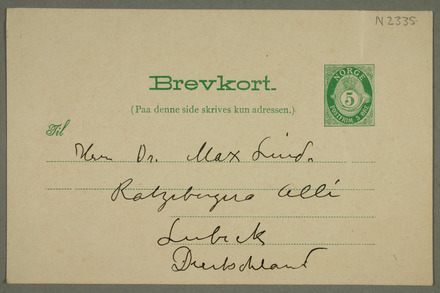 N 2335
Brevkort.
NORGE
5
POSTFRIM. 5 ØRE
(Paa denne side skrives kun adressen.)
Til
Herrn Dr. Max Lind.
Ratzeburger Allé
Lübeck
Deutschland